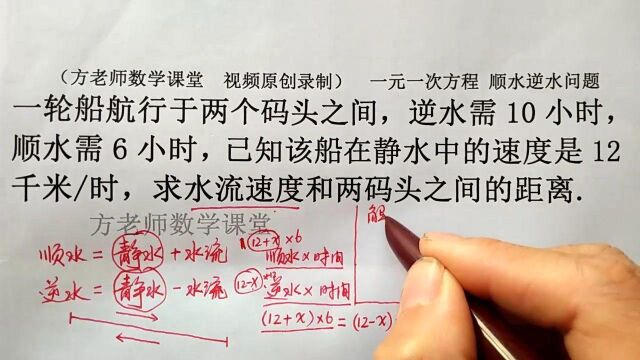 （方老师数学课堂 视频原创录制） 一元一次方程 顺水逆水问题
一轮船航行于两个码头之间，逆水需 10 小时，
顺水需 6 小时，已知该船在静水中的速度是 12
千米/时，求水流速度和两码头之间的距离.
方老师数学课堂
解
顺水 = 静水 + 水流 (12+x)×6
顺水×时间
逆水 = 静水 - 水流 (12-x)
逆水×时间
(12+x)×6 = (12-x)